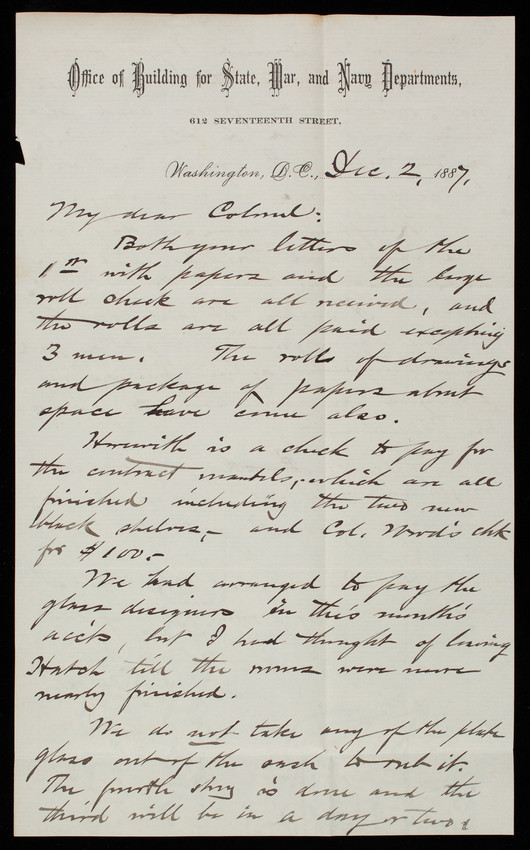 Office of Building for State, War, and Navy Departments,
612 SEVENTEENTH STREET.
Washington, D.C., Dec. 2, 1887,
My dear Colonel:
Both your letters of the
1st with papers and the large
roll check are all received, and
the rolls are all paid excepting
3 men. The rolls of drawings
and package of papers about
space have come also.
Herewith is a check to pay for
the contract mantels, which are all
finished including the two new
black shelves,- and Col. Wood's chk
for $100.-
We had arranged to pay the
glass designers in this month's
acc'ts, but I had thought of leaving
Hatch till the rooms were more
nearly finished.
We do not take any of the plate
glass out of the sash to rub it.
The fourth story is done and the
third will be in a day or two.